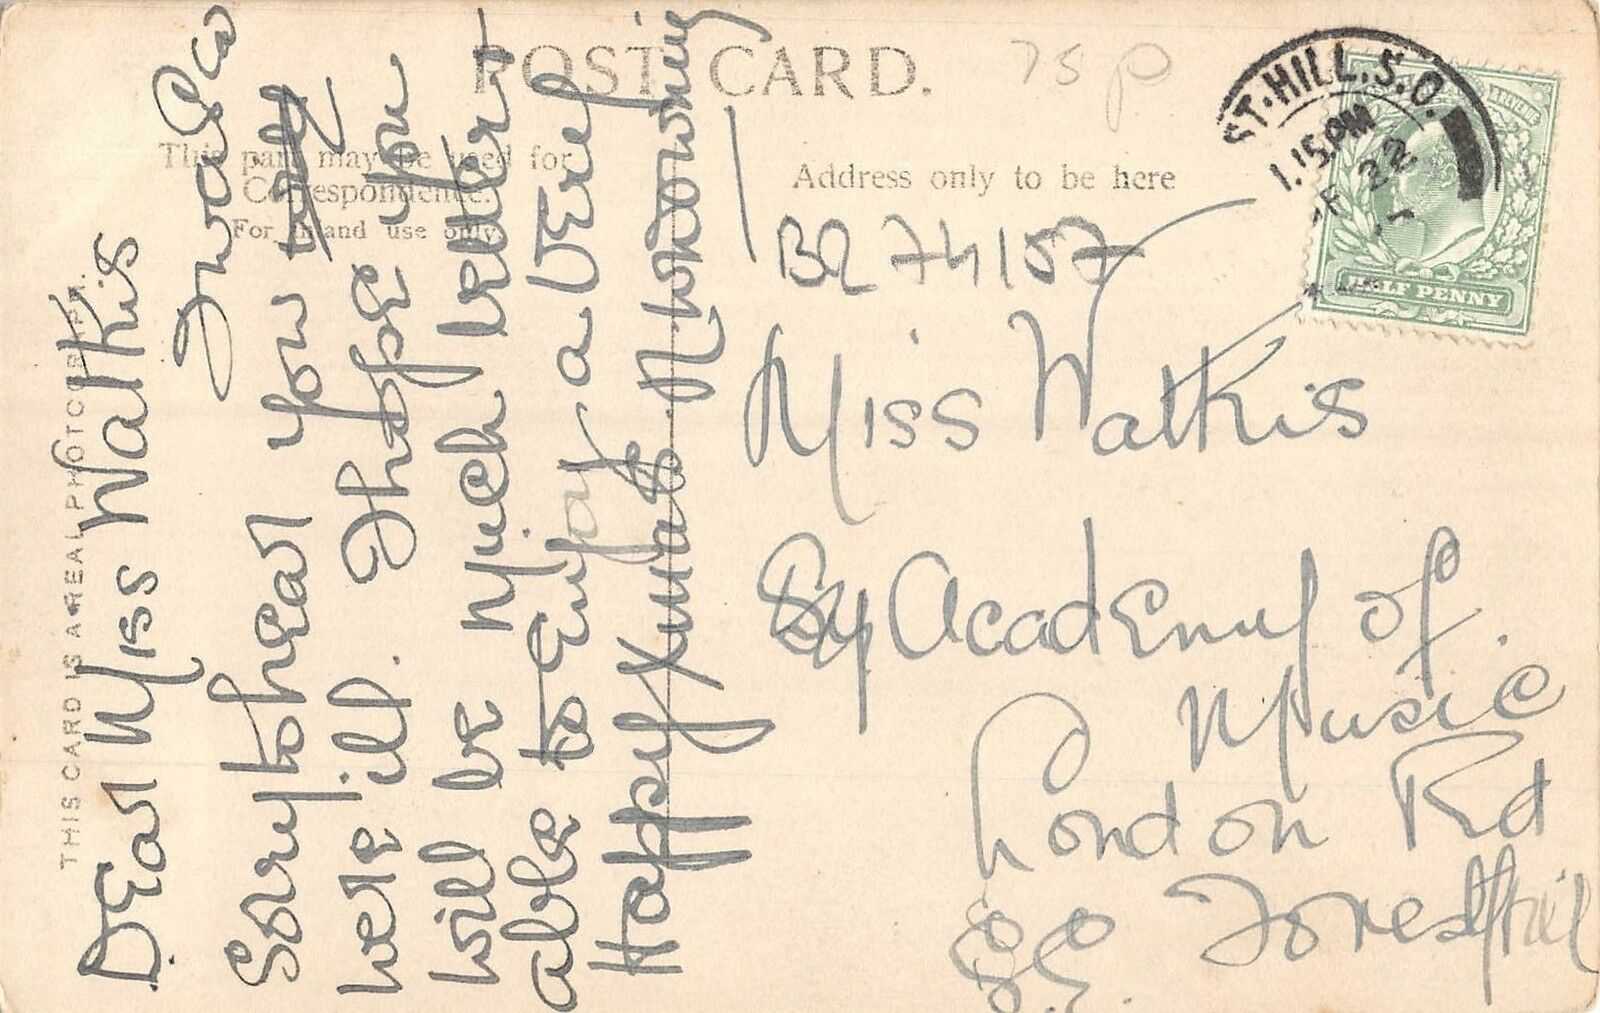 POST CARD.
75p
This part may be used for
Correspondence.
For inland use only.
Address only to be here
THIS CARD IS A REAL PHOTOGRAPH.
ST. HILL. S.O.
1.15 PM
22
HALF PENNY
B274157
Miss Watkis
Academy of
Music
London Rd
Forest Hill
S.E.
Dear Miss Watkis
I was so
sorry to hear you
were ill. I hope you
will be much better
able to enjoy a very
Happy Xmas